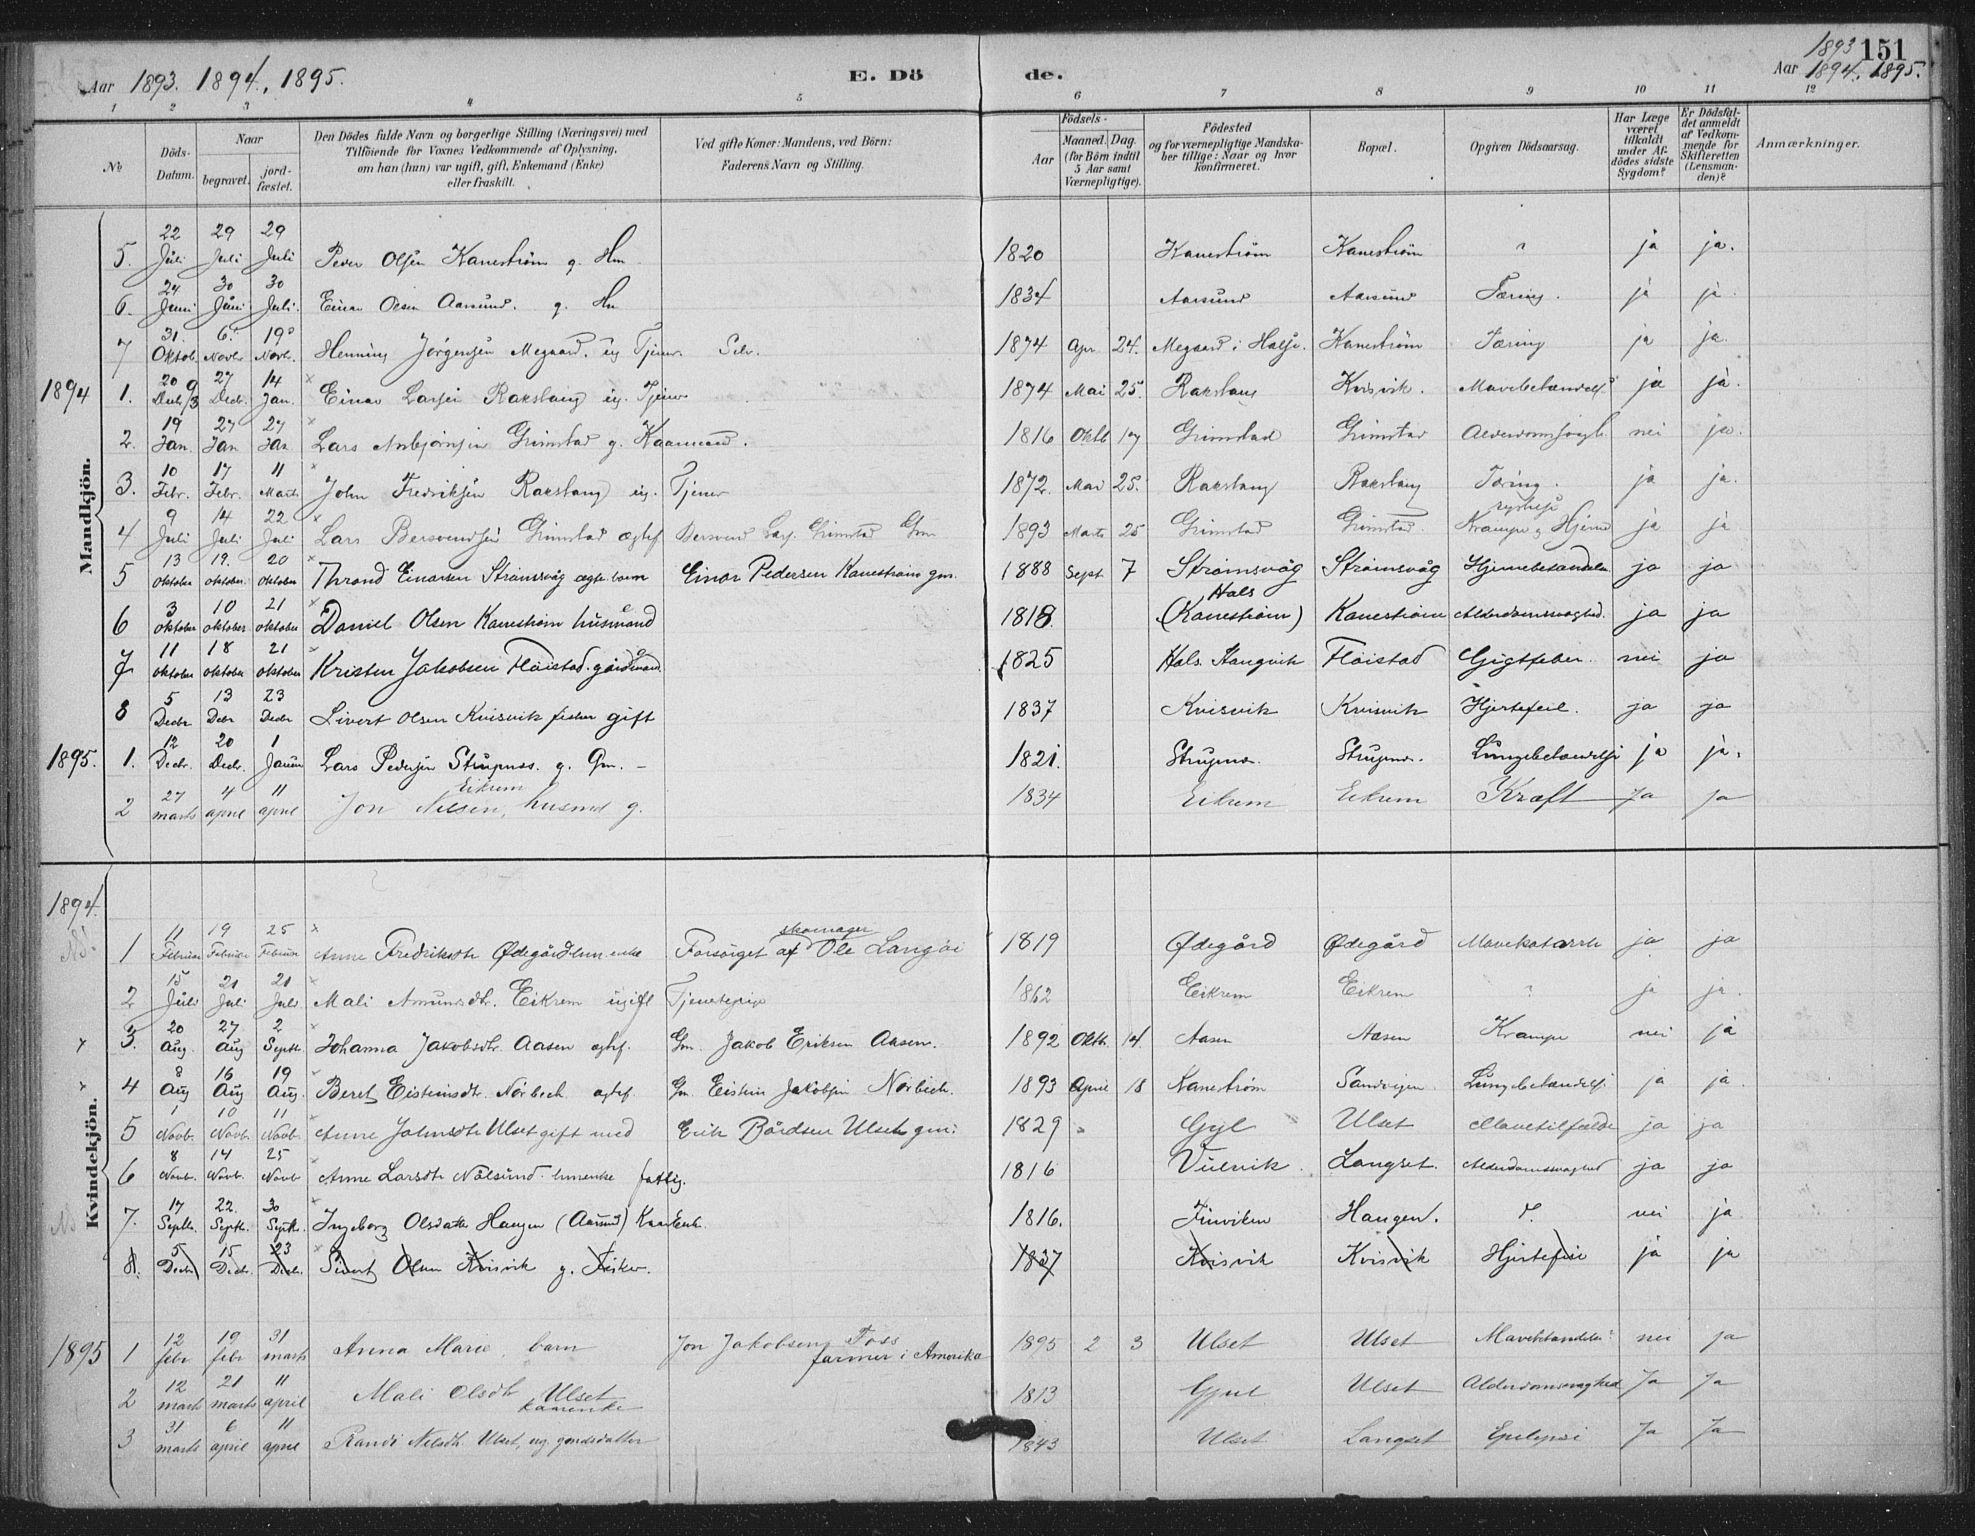 Aar 1893. 1894, 1895.
E. Dö
de.
1893 151
Aar 1894, 1895.
1 2 3 4 5 6 7 8 9 10 11 12
No
Döds-Datum.
Naar
begravet.
jord-fæstet.
Den Dödes fulde Navn og borgerlige Stilling (Næringsvei) med
Tilföiende for Voxnes Vedkommende af Oplysning,
om han (hun) var ugift, gift, Enkemand (Enke)
eller fraskilt.
Ved gifte Koner: Mandens, ved Börn:
Faderens Navn og Stilling.
Födsels-
Aar
Maaned. Dag.
(for Börn indtil
5 Aar samt
Værnepligtige).
Födested
og for værnepligtige Mandska-
ber tillige: Naar og hvor
konfirmeret.
Bopæl.
Opgiven Dödsaarsag.
Har Læge
været
tilkaldt
under Af-
dödes sidste
Sygdom?
Er Dödsfal-
det anmeldt
af Vedkom-
mende for
Skifteretten
(Lensman-
den)?
Anmærkninger.
Mandkjön.
5. 22 Juli 29 Juli 29 Juli Peder Olsen Kanestrøm g. Hm 1820 Kanestrøm Kanestrøm ? ja ja.
6. 24 Juni 30 Juni 30 Juli. Einar Olsen Aarsund. g. Hm 1834 Aarsund Aarsund Tæring. ja ja.
7 31. Oktob. 6. Novbr 19 Novbr. Henning Jørgensen Megaard. ug Tjener Selv. 1874 Apr 24. Megaard i Halse. Kanestrøm Tæring ja ja.
1894 1. 20 Decb. 9/3 27 Decbr. 14 Jan. Einar Larsen Rakslang ug. Tjener 1874 Mai 25. Rakslang Kvisvik. Mavebetændelse ja ja.
2. 19 Jan. 27 Jan 27 Jan Lars Arnbjørnsen Grimstad g. Kaarmand. 1816 Oktb 17 Grimstad Grimstad Alderdomssvagh. nei ja.
3. 10 Febr. 17 Febr. 11 Marts John Fredriksen Rakslang ug. Tjener 1872. Mai 25. Rakslang Rakslang Tæring. ja ja.
4 9 Juli 14 Juli 22 Juli Lars Bersvendsen Grimstad ægtef Bersvend Lars. Grimstad Gm 1893 Marts 25 Grimstad Grimstad. Krampe og Hjerne ja ja
5 13 oktober 19. oktober. 20 oktober Thrond Einarsen Strømsvåg ægte barn Einar Pedersen Kanestrøm gm. 1888 Sept. 7 Strømsvåg Strømsvåg Hjernebetændelse ja ja
6 3 oktober 10 oktober 21 oktober Daniel Olsen Kanestrøm husmand 1818. Hals (Kanestrøm) Kanestrøm Alderdomssvaghed. ja ja
7 11 oktober 18 oktober 21 oktober Kristen Jakobsen Fløistad. gårdmand. 1825 Hals. Fløistad Gigtfeber. nei ja
8 5 Decbr 13 Decbr 23 Decbr Sivert Olsen Kvisvik fisker gift 1837 Kvisvik Kvisvik Hjertefeil. ja ja
1895. 1. 12 Decbr. 20 Decbr. 1 Januar Lars Pedersen Strupnes. g. Gm. - 1821. Strupnes. Strupnes. Lungebetændelse ja ja.
2 27 marts 4 april 11 april Jon Nilsen Eikrem, husmd g. 1834 Eikrem Eikrem Kræft Ja ja
Kvindekjön.
1894.
1 11 Februar 19 Februar 25 Februar Anne Fredriksdtr Ødegård enke Forsørget af skomager Ole Langøi 1819 Ødegård Ødegård Mavekatarrh ja ja
2 15 Juli 21 Juli 21 Juli Mali Amundsdtr. Eikrem ugift Tjenestepige 1862 Eikrem Eikrem ? ja ja.
3. 20 Aug. 27 Aug 2 Septbr. Johanna Jakobsdtr. Aasen ægtef. Gm. Jakob Eriksen Aasen. 1892 Oktb. 14. Aasen Aasen Krampe nei ja
4 8 Aug 16 Aug 19 Aug. Beret Eisteinsdtr. Nørbech ægtef. Gm. Eistein Jakobsen Nørbech. 1893 April 18 Kanestrøm Sandvigen. Lungebetændelse ja ja
5 1 Novb. 10 Novb. 11 Novb. Anne Johnsdtr Ulset gift med Erik Bårdsen Ulset gm: 1829 Gyl Ulset Mavetilfælde ja ja
6 8 Novbr. 14 Novb. 25 Novb Anne Larsdtr Nålsund. enke fattig. 1816 Vulvik. Langset. Alderdomssvaghed ja ja
7. 17 Septbr. 22. Septbr. 30 Septbr. Ingeborg Olsdatter Haugen (Aarsund) Kaarenk. 1816. Finviken Haugen. ?. nei ja
8. 5 Decbr 15 Decbr. 23 Decbr. Sivert Olsen Kvisvik g. Fisker. 1837 Kvisvik Kvisvik Hjertefeil ja ja
1895 1 12 febr 19 febr 31 marts Anna Marie, barn Jon Jakobsen Foss farmer i Amerika 1895 2 3 Ulset Ulset Mavebetændelse nei ja
2 12 marts 21 marts 11 april Mali Olsdtr Ulset kaarenke 1813 Gjul Ulset Alderdomssvaghed Ja Ja
3 31 marts 6 april 11 april Randi Nilsdtr. Ulset, ug. gårdsdatter 1843 Ulset Langset Epilepsi Ja Ja